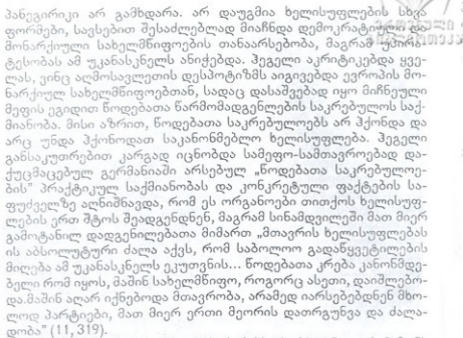 პანეგირიკი არ გამხდარა. არ დაუგმია ხელისუფლების სხვა
ფორმები, სავსებით შესაძლებლად მიაჩნდა დემოკრატიული და
მონარქიული სახელმწიფოების თანაარსებობა, მაგრამ უპირა-
ტესობას ამ უკანასკნელს ანიჭებდა. ჰეგელი აკრიტიკებდა ყვე-
ლას, ვინც აღმოსავლეთის დესპოტიზმს აიგივებდა ევროპის მო-
ნარქიულ სახელმწიფოებთან, სადაც დასაშვებად იყო მიჩნეული
მეფის ეგიდით წოდებათა წარმომადგენლების საკრებულოს საქ-
მიანობა. მისი აზრით, წოდებათა საკრებულოებს არ ჰქონდა და
არც უნდა ჰქონოდათ საკანონმებლო ხელისუფლება. ჰეგელი
განსაკუთრებით კარგად იცნობდა სამეფო-სამთავროებად და-
ქუცმაცებულ გერმანიაში არსებულ „წოდებათა საკრებულოე-
ბის" პრაქტიკულ საქმიანობას და კონკრეტული ფაქტების სა-
ფუძველზე აღნიშნავდა, რომ ეს ორგანოები თითქოს ხელისუფ-
ლების ერთ შტოს შეადგენდნენ, მაგრამ სინამდვილეში მათ მიერ
გამოტანილ დადგენილებათა მიმართ „მთავრის ხელისუფლებას
ის აბსოლუტური ძალა აქვს, რომ საბოლოო გადაწყვეტილების
მიღება ამ უკანასკნელს ეკუთვნის... წოდებათა კრება კანონმდე-
ბელი რომ იყოს, მაშინ სახელმწიფო, როგორც ასეთი, დაიშლებო-
და.მაშინ აღარ იქნებოდა მთავრობა, არამედ იარსებებდნენ მხო-
ლოდ პარტიები, მათ მიერ ერთი მეორის დათრგუნვა და ძალა-
დობა" (11, 319).